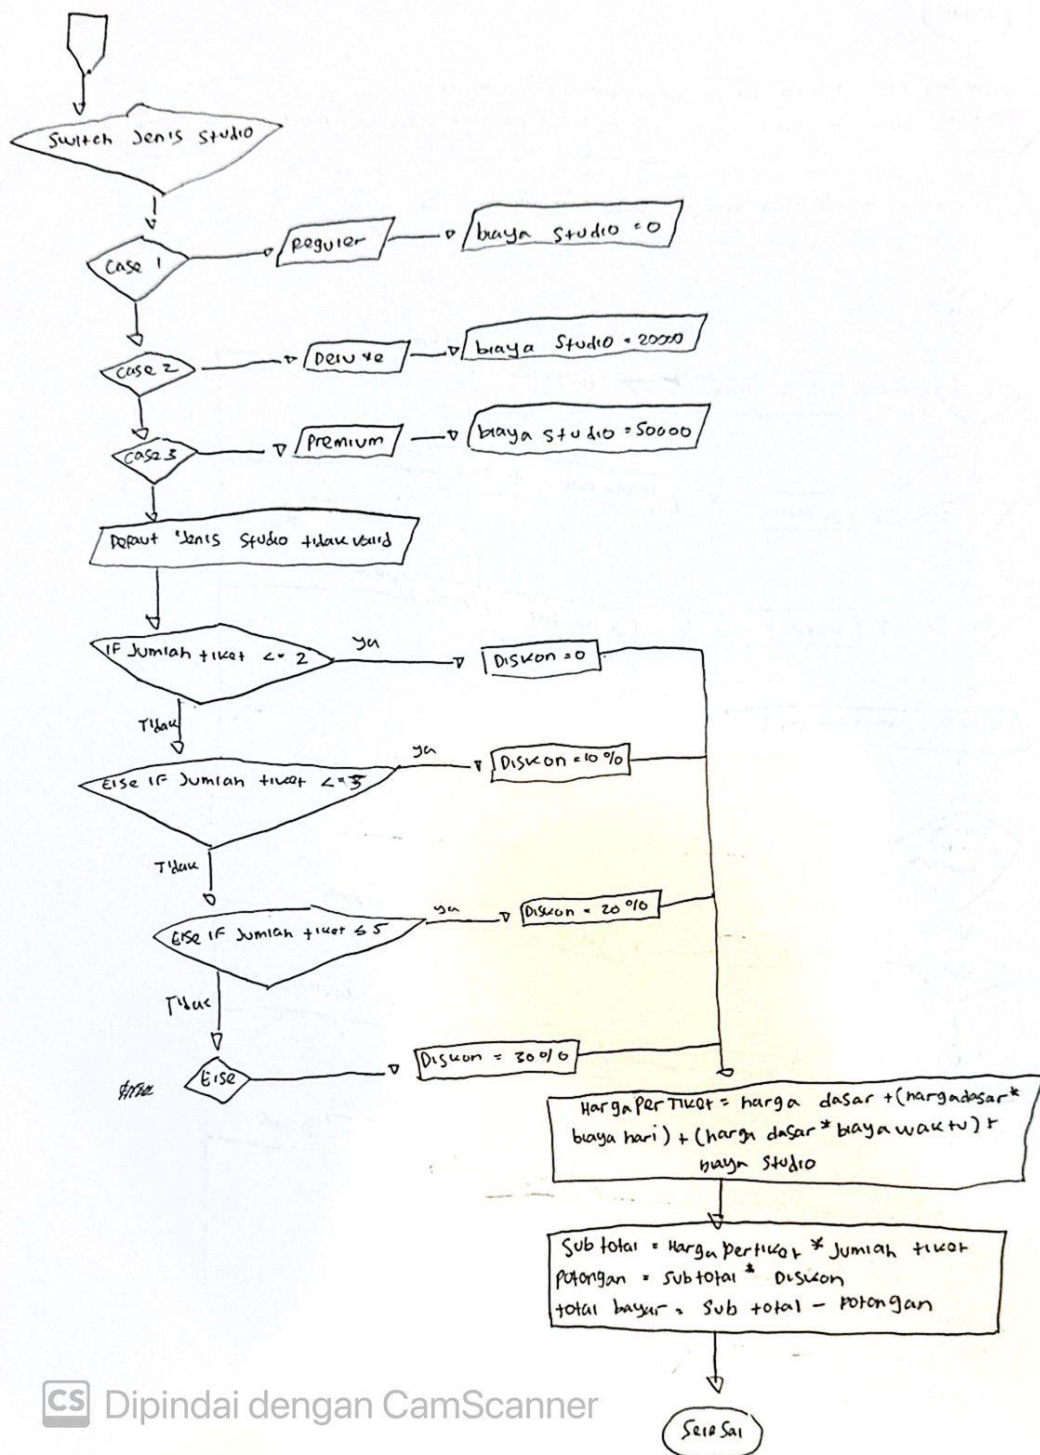 Switch Jenis Studio
Case 1
Reguler
biaya Studio = 0
Case 2
Deluxe
biaya Studio = 20000
Case 3
Premium
biaya studio = 50000
Defaut "Jenis Studio tidak valid
IF Jumlah tiket <= 2
ya
Diskon = 0
Tidak
Else IF Jumlah tiket <= 5
ya
Diskon = 10%
Tidak
Else IF Jumlah tiket ≤ 5
ya
Diskon = 20%
Tidak
Else
Diskon = 30%
Harga Per Tiket = harga dasar + (harga dasar *
biaya hari) + (harga dasar * biaya waktu) +
biaya Studio
Sub total = Harga Per tiket * Jumlah tiket
Potongan = Subtotal * Diskon
total bayar = Sub total - Potongan
Selesai
CS Dipindai dengan CamScanner